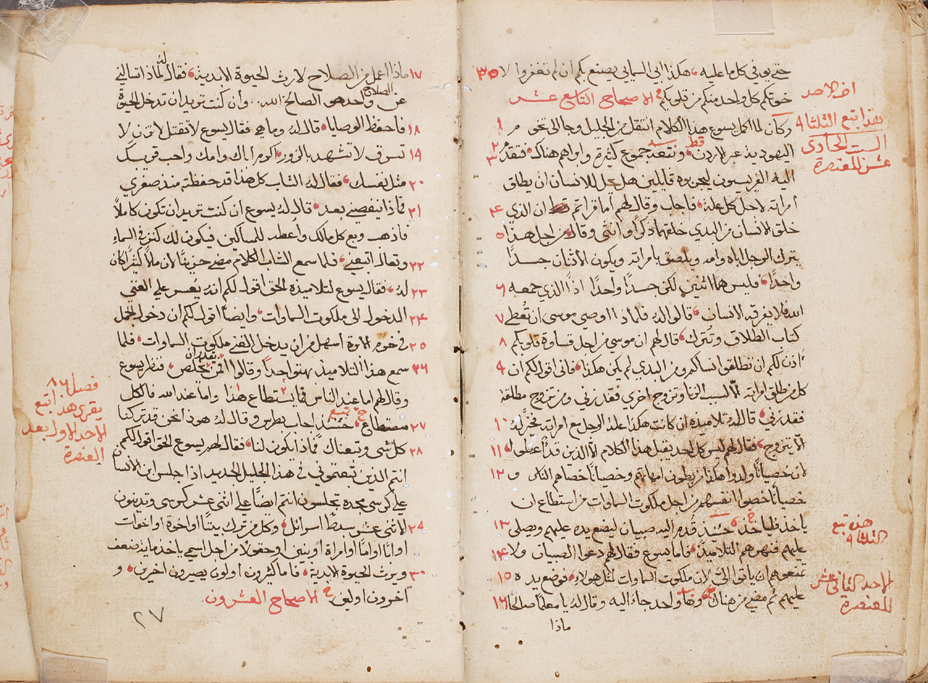 حتى يوفي كلما عليه ۰ هكذا ابي السماني يصنع بكم ان لم تغفروا لا ٣٥
خوتكم كل واحد منكم من قلوبكم ۰ الاصحاح التاسع عشر
وكان لما اكمل يسوع هذا الكلام انتقل من الجليل وجا الى تخوم ١
اليهودية عبر الاردن ۰ وتبعه جموع كثيرة وابراهم هناك ۰ فتقدم ٢ ٣
اليه الفريسيون ليجربوه قايلين هل يحل للانسان ان يطلق
امراته لاجل كل علة ۰ فاجاب وقال لهم اما قراتم ان الذي ٤
خلق الانسان من البدي خلقهما ذكرا وانثي وقال ۰ من اجل هذا ٥
يترك الرجل اباه وامه ويلصق بامراته ويكون الاثنان جسدا
واحدا ۰ فليس هما اثنين لكن جسدا واحدا اذا الذي جمعه ٦
الله لا يفرقه الانسان ۰ قالوا له فلماذا اوصي موسى ان تعطى ٧
كتاب الطلاق وتترك ۰ قال لهم ان موسى من اجل قساوة قلوبكم ٨
اذن لكم ان تطلقوا نساكم ومن البدي لم يكن هكذا ۰ فاني اقول لكم ان ٩
كل من طلق امراته الا لسبب الزنا وتزوج اخري فقد زني ومن تزوج مطلقة
فقد زني ۰ قال له تلاميذه ان كانت هكذا علة الرجل مع امراته فخير له ١٠
الا يتزوج ۰ فقال لهم ليس كل احد يقبل هذا الكلام الا الذين قد اعطوا ۰ ١١
ان خصيانا ولدوا هكذا من بطون امهاتهم وخصيانا خصاهم الناس و ١٢
خصيانا اخصوا انفسهم من اجل ملكوت السماوات من استطاع ان
ياخذ فلياخذ ۰ حينئذ قدم اليه صبيان ليضع يده عليهم ويصلي ١٣
عليهم فنهرهم التلاميذ ۰ فاما يسوع فقال لهم دعوا الصبيان ولا ١٤
تمنعوهم ان ياتوا الي لان ملكوت السماوات لمثل هولاء ۰ فوضع يده ١٥
عليهم ثم مضي من هناك ۰ وها واحد جاء اليه وقال له يا معلما صالحا ١٦
ماذا
اقرا لاحد
بقدا بتبع الثلثا ٩
السبت الحادي
عشر للعنصرة
هذه تبع
الثلثا ٩
للاحد الثاني عشر
للعنصرة
١٧ ماذا اعمل من الصلاح لارث الحيوة الابدية ۰ فقال له لماذا تسالني
عن الصلاح واحد هو الصالح الله ۰ وان كنت تريد ان تدخل الحيوة
١٨ فاحفظ الوصايا ۰ قال له وما هي فقال يسوع لا تقتل لا تزن لا
١٩ تسرق لا تشهد بالزور ۰ اكرم اباك وامك واحب قريبك
٢٠ مثل نفسك ۰ فقال له الشاب كل هذا قد حفظته منذ صغري
٢١ فماذا ينقصني بعد ۰ قال له يسوع ان كنت تريد ان تكون كاملا
فاذهب وبع كل مالك واعطه للمساكين فيكون لك كنز في السماء
٢٢ وتعال اتبعني ۰ فلما سمع الشاب الكلام مضي حزينا لان مالا كثيرا كان
٢٣ له ۰ فقال يسوع لتلاميذه الحق اقول لكم انه يعسر علي الغني
٢٤ الدخول الى ملكوت السماوات ۰ وايضا اقول لكم ان دخول الجمل
٢٥ في خرم الابرة اسهل من ان يدخل الغني ملكوت السماوات ۰ فلما
٢٦ سمع هذا التلاميذ بهتوا جدا وقالوا من يقدر ان يخلص ۰ فنظر يسوع
وقال لهم اما عند الناس فما يستطاع هذا واما عند الله فالكل
٢٧ مستطاع ۰ حينئذ اجاب بطرس وقال له هوذا نحن قد تركنا
٢٨ كل شي وتبعناك فماذا يكون لنا ۰ فقال لهم يسوع الحق اقول لكم
انتم الذين تبعتموني في هذا الجيل الجديد اذا جلس ابن الانسان
علي كرسي مجده تجلسون انتم ايضا علي اثنى عشر كرسي وتدينون
٢٩ الاثنى عشر سبط اسرائل ۰ وكل من ترك بيتا او اخوة او اخوات
او ابا او اما او امراة او بنين او حقولا من اجل اسمي ياخذ ماية ضعف
٣٠ ويرث الحيوة الابدية ۰ فاما كثيرون اولون يصيرون اخرين ۰ و
اخرون اولين ۰ الاصحاح العشرون
فصل ٨٦
يقري هذا تبع
الاحد الاول بعد
العنصرة
٢٧